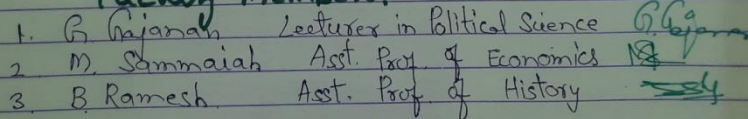 Faculty Members
1. G. Gajanan Lecturer in Political Science G. Gaja
2 M. Sammaiah Asst. Prof. of Economics
3. B. Ramesh. Asst. Prof. of History